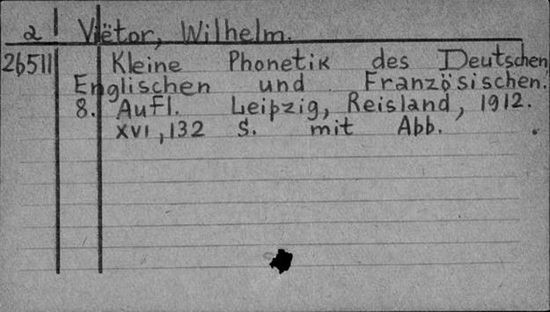 2 Viëtor, Wilhelm.
26511 Kleine Phonetik des Deutschen
Englischen und Französischen.
8. Aufl. Leipzig, Reisland, 1912.
XVI, 132 S. mit Abb.